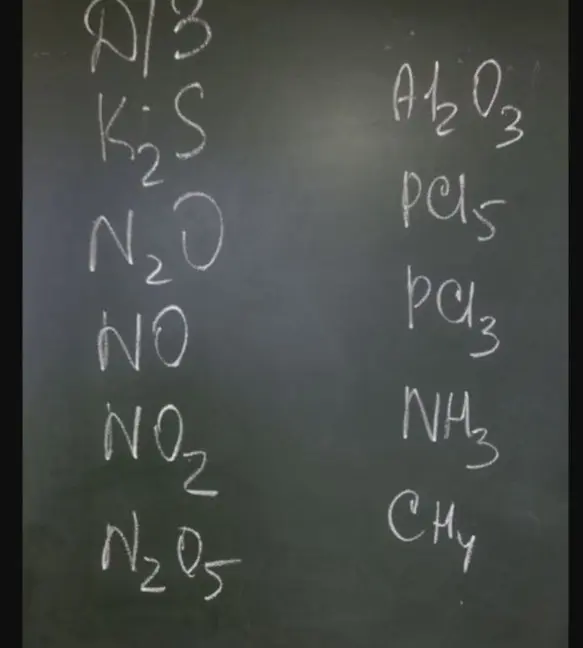 Д/З
K₂S
N₂O
NO
NO₂
N₂O₅
Al₂O₃
PCl₅
PCl₃
NH₃
CH₄